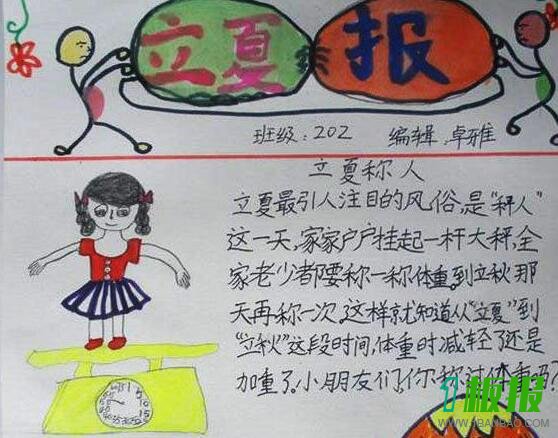 立夏报
班级:202 编辑:卓雅
立夏称人
立夏最引人注目的风俗,是“秤人”
这一天,家家户户挂起一杆大秤,全
家老少都要称一称体重,到立秋那
天再称一次,这样就知道从“立夏”到
“立秋”这段时间,体重时减轻了还是
加重了。小朋友们,你称过体重吗?
1板报
WWW.1BANBAO.COM